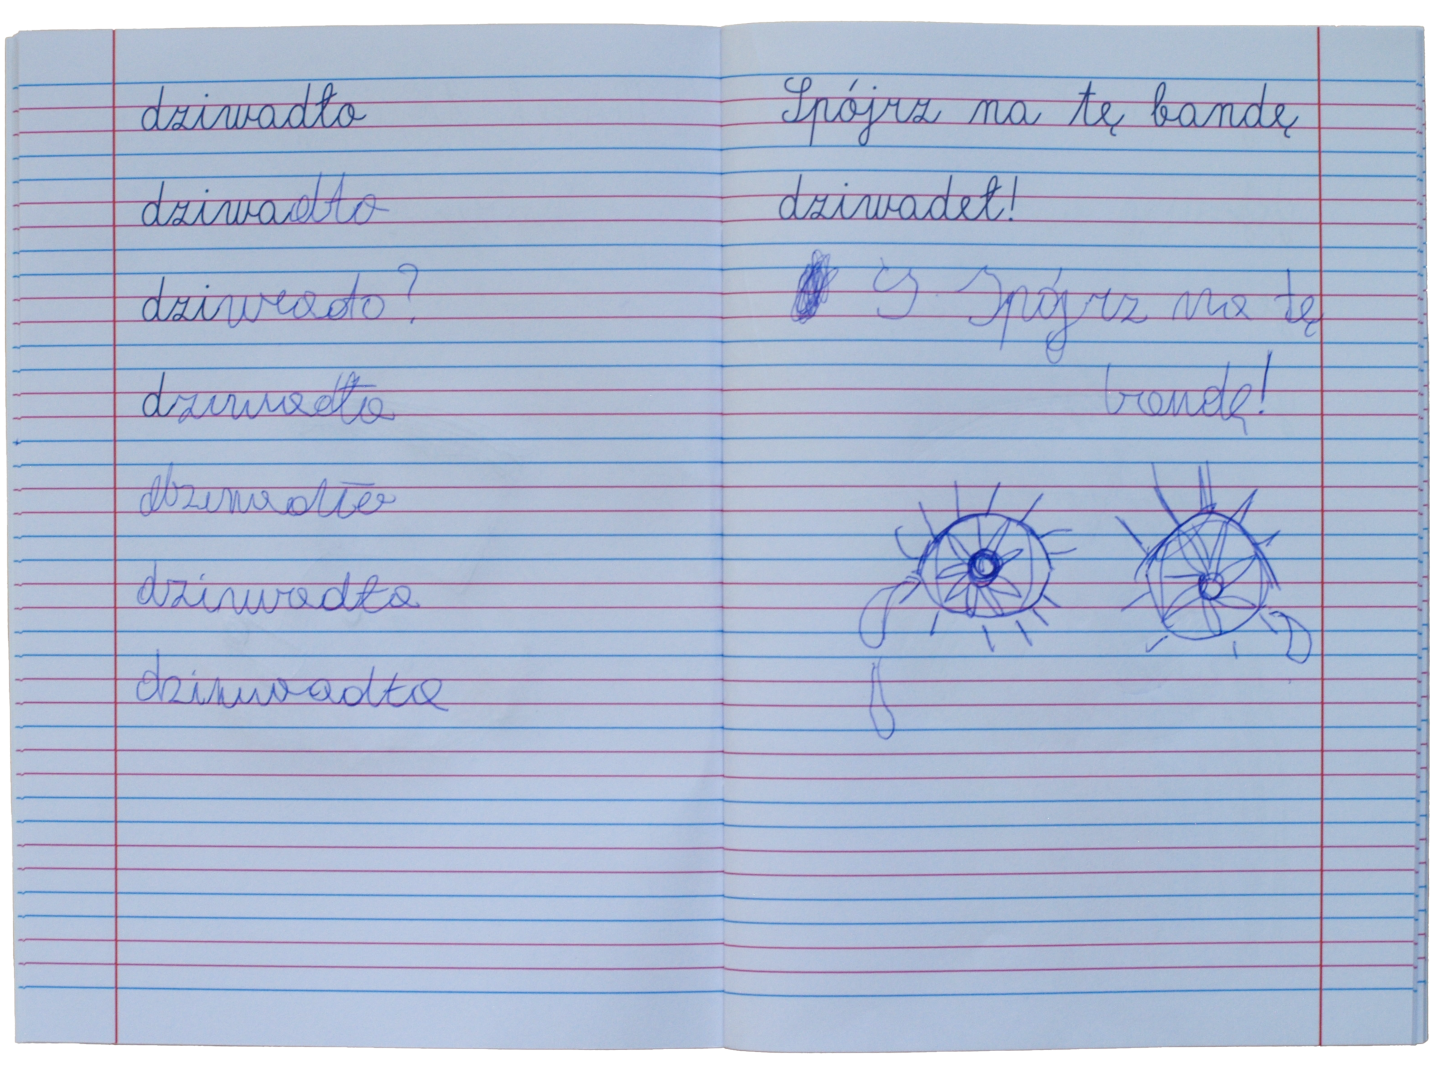 dziwadło
dziwadło
dziwado?
dziwadło
dziwadło
dziwadło
dziwadło
Spójrz na tę bandę
dziwadeł!
S. Spójrz na tę
bandę!